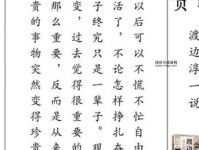 渡边淳一说
以后可以不慌不忙自由
活了，不论怎样挣扎奋
子终究只是一辈子。观
变，过去觉得很重要的
那么重要，反而是从来
贵的事物突然变得珍贵